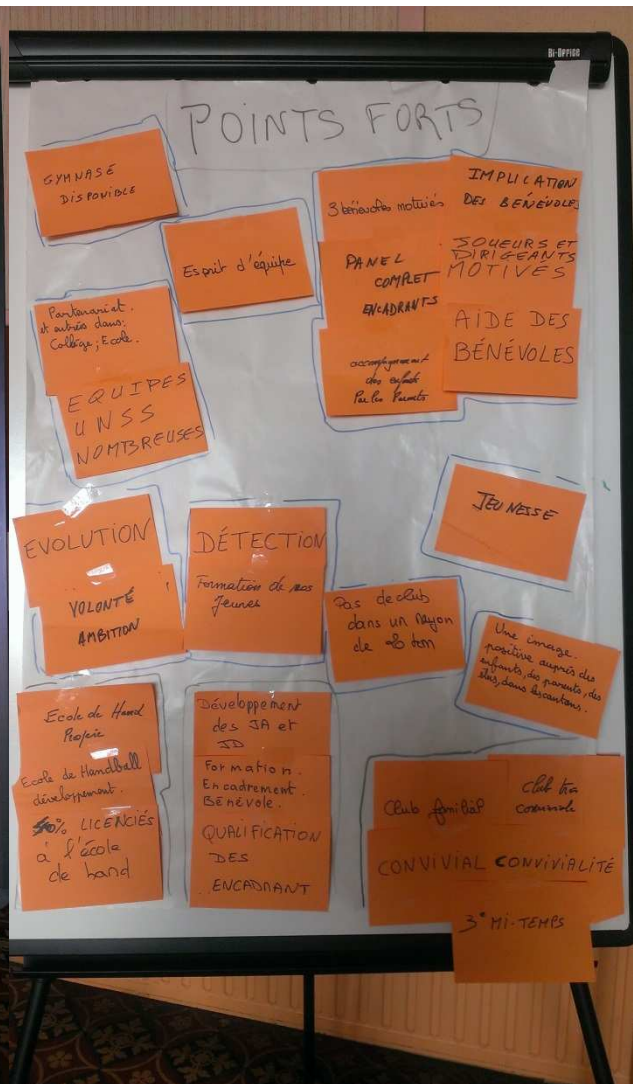 Bi-Office
POINTS FORTS
GYMNASE
DISPONIBLE
Esprit d'équipe
3 bénévoles motivés
IMPLICATION
DES BENEVOLES
PANEL
COMPLET
ENCADRANTS
JOUEURS ET
DIRIGEANTS
MOTIVÉS
accompagnement
des enfants
Par les Parents
AIDE DES
BÉNÉVOLES
Partenariat.
et entrées dans:
Collège; Ecole.
EQUIPES
UNSS
NOMBREUSES
EVOLUTION
VOLONTÉ
AMBITION
DÉTECTION
Formation de nos
Jeunes
JEUNESSE
Pas de club
dans un Rayon
de km
Une image.
positive auprès des
enfants, des parents, des
élus, dans les cantons.
Ecole de Hand
Ecole de Handball
développement.
% LICENCIÉS
à l'école
de hand
Développement
des JA et
JD
Formation.
Encadrement.
Bénévole.
QUALIFICATION
DES
ENCADRANT
Club familial
Club
CONVIVIAL
CONVIVIALITÉ
3° MI-TEMPS